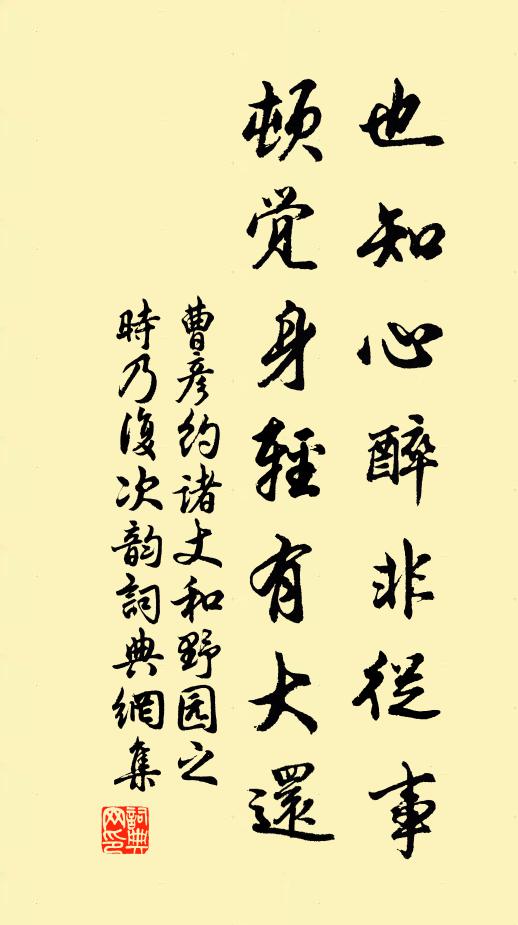 也知心醉非從事
頓覚身輕有大還
曹彦約諸丈和野园之
時乃復次韵詞典網集
詞典網印